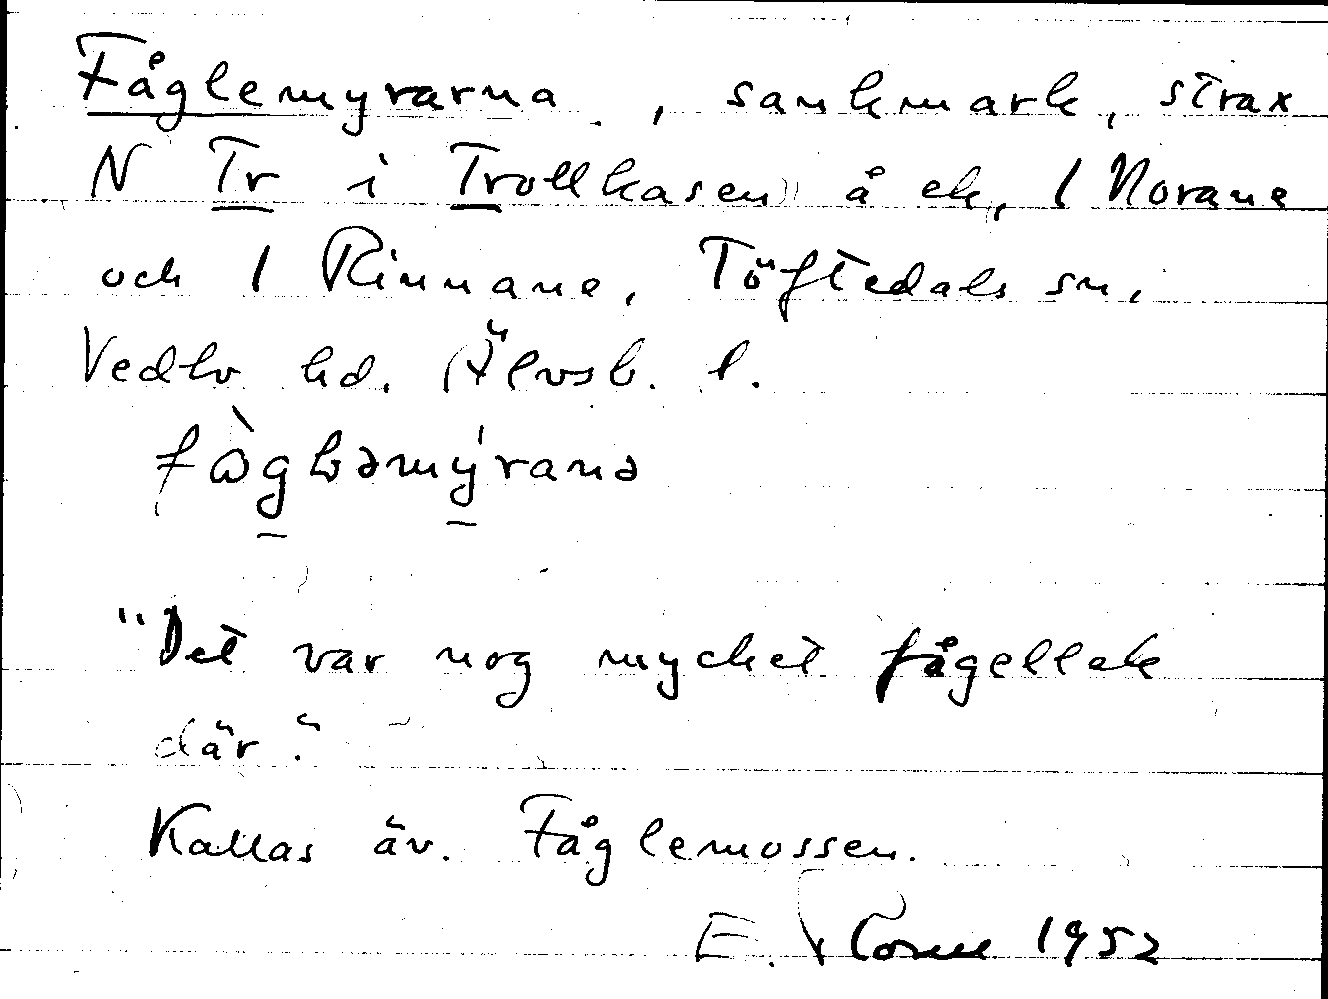 Fåglemyrarna, sankmark, strax
N Tr i Trollkasen å ek, 1 Norane
och 1 Rinnane, Töftedals sn,
Vedbo hd. Älvsb. l.
"Det var nog mycket fågellek
där."
Kallas äv. Fåglemossen.
E. 1952